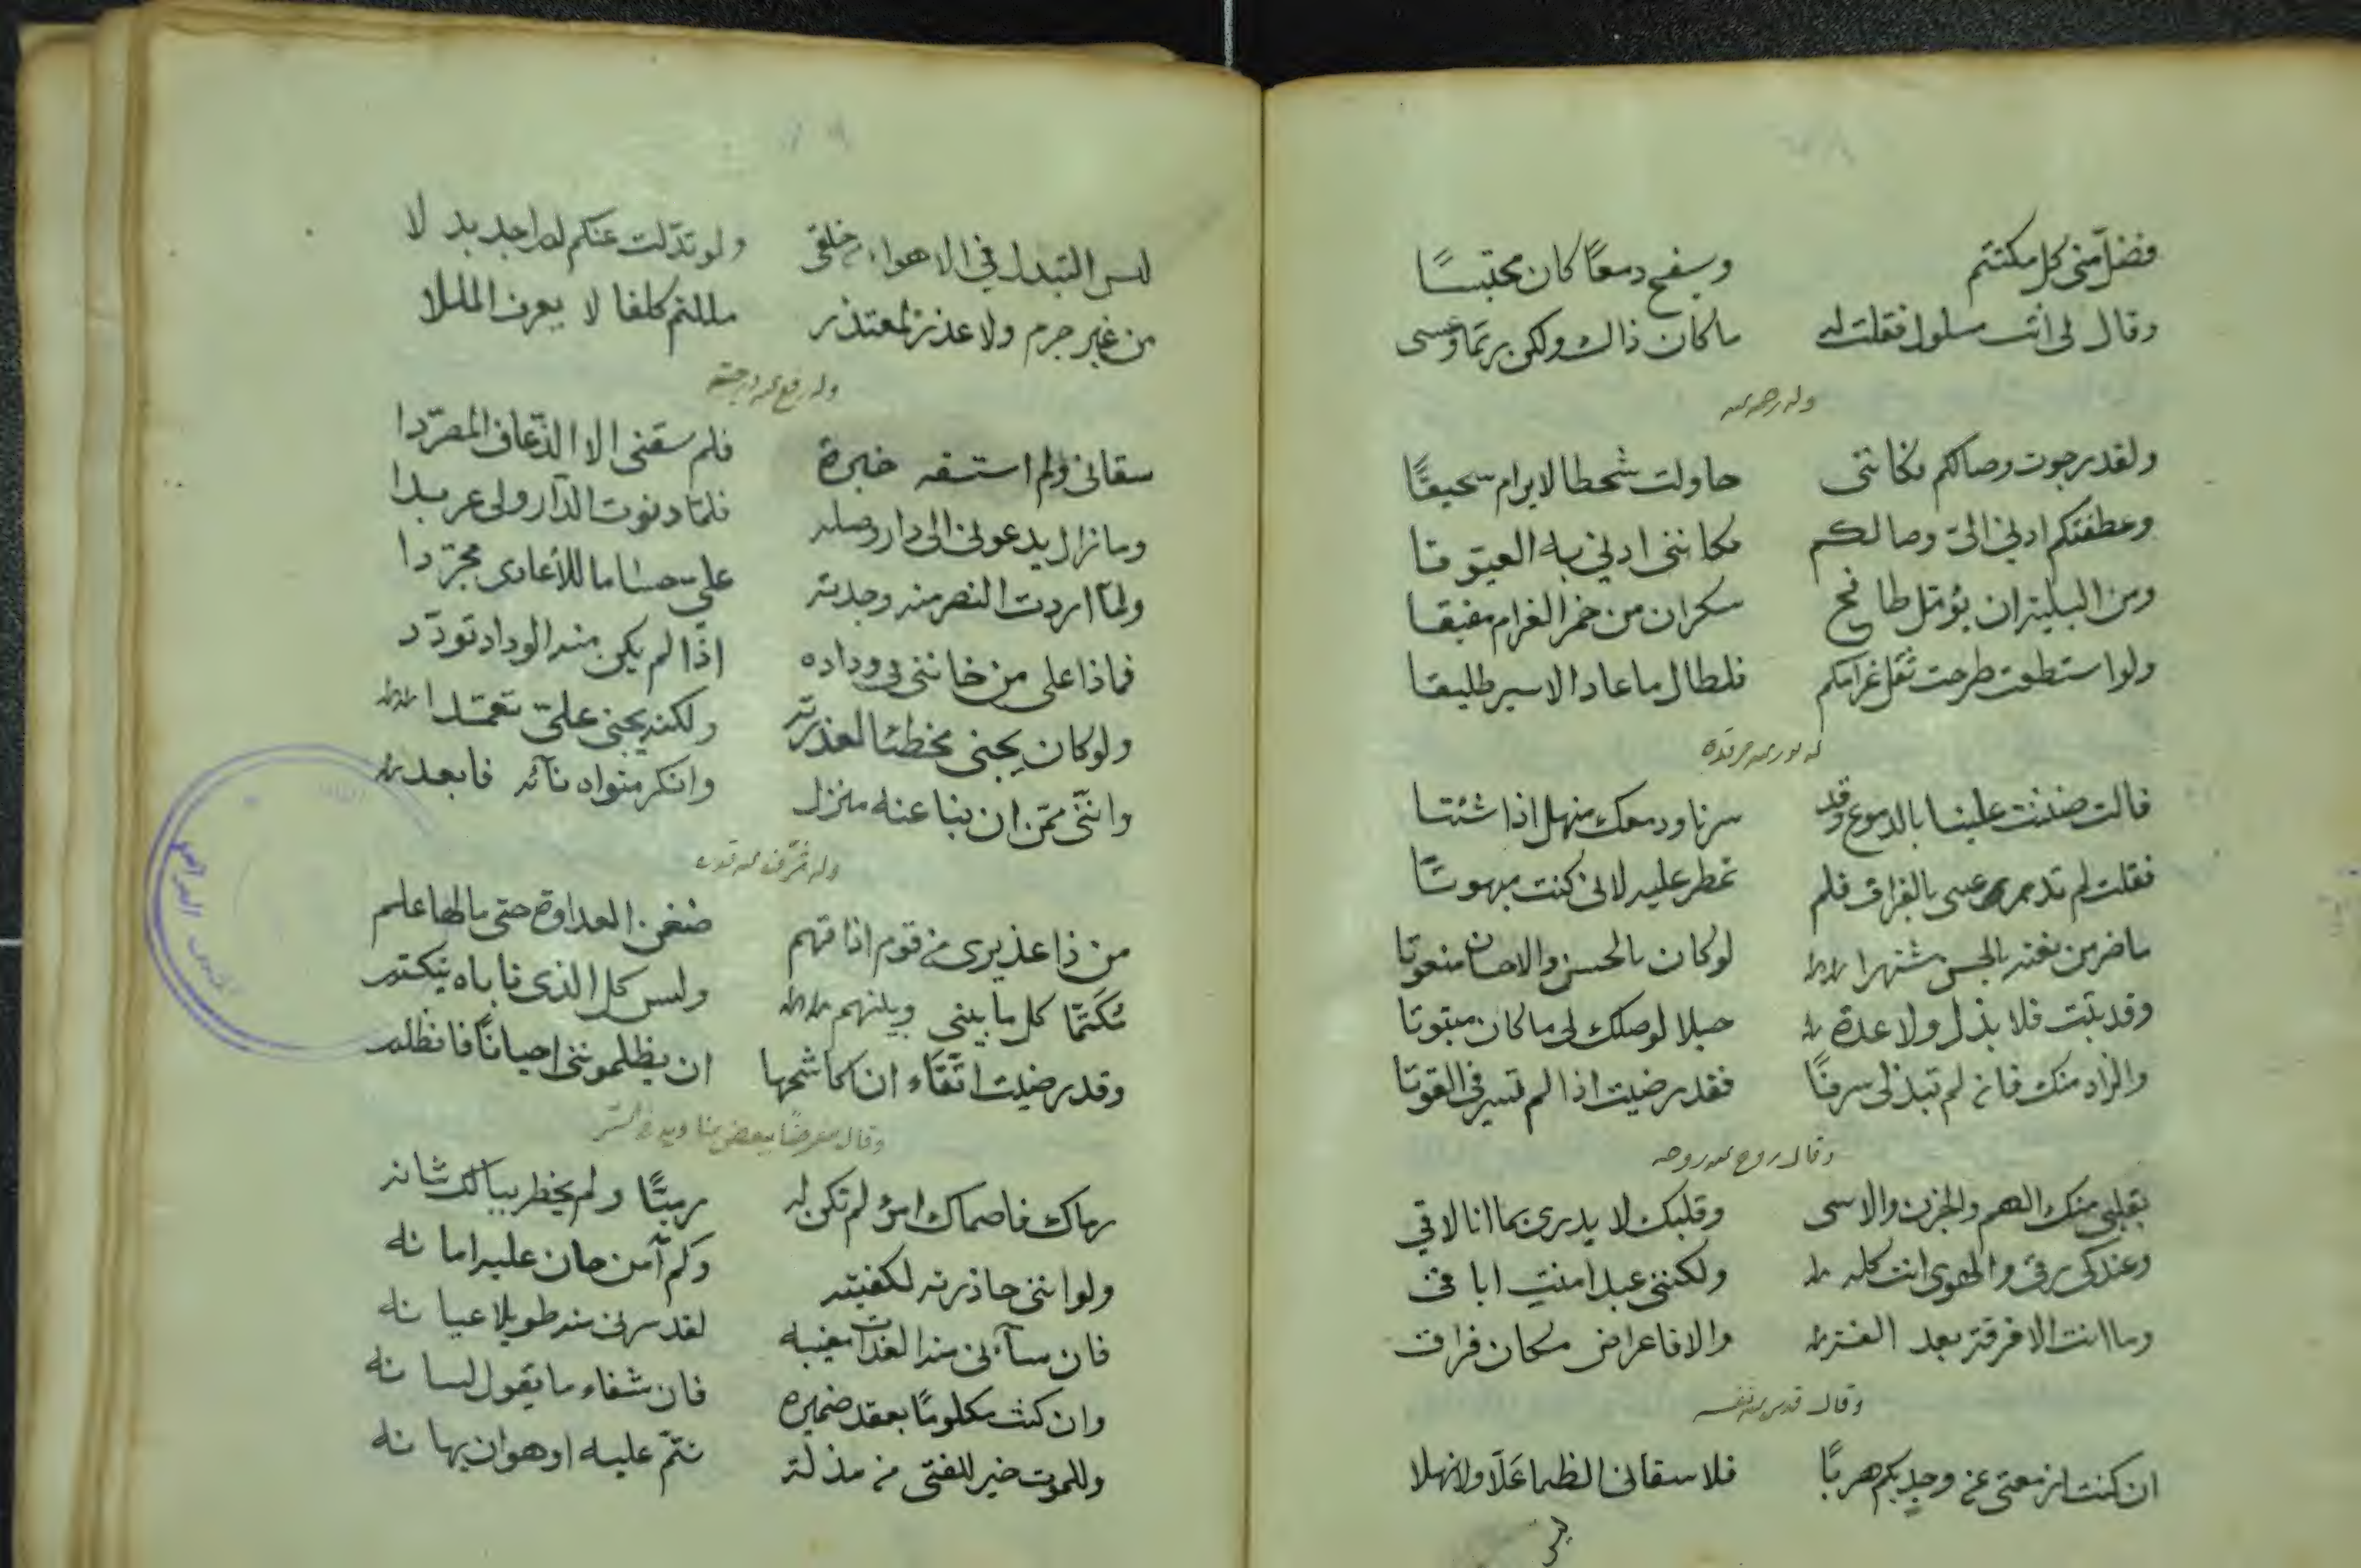 فضل مني كل مكتتم وسفح دمعًا كان محتبسًا
وقال لي انت سلول فقلت له ما كان ذاك ولكن ربما وعسى
وله رحمه الله
ولقد رجوت وصالكم فكانني حاولت شحطا لا يرام سحيقًا
وعطفتكم ادني الى وصالكم فكانني ادني به العيوقا
ومن البلية ان يؤمل طافح سكران من خمر الغرام مفيقا
ولو استطعت طرحت ثقل غرامكم فلطال ما عاد الاسير طليقا
قالت ضننت علينا بالدموع وقد سرنا ودمعك منهل اذا شئتا
فقلت لم تدر عيني بالفراق فلم تمطر عليه لاني كنت مبهوتًا
ما ضر من نعته بالحسن مشتهرا لو كان بالحسن والاحسان منعوتا
وقد بتت فلا بذل ولا عدة حبلا لوصلك لي ما كان مبتوتا
والزاد منك فان لم تبذلي سرفًا فقد رضيت اذا لم تسرفي القوتا
وقال روح الله روحه
بقلبي منك الهم والحزن والاسى وقلبك لا يدري بما انا لاقي
وعندك رقي والهوى انت كله ولكنني عبد امنت اباقي
وما انت الا فرقة بعد والا فاعراض مكان فراق
وقال قدس الله نفسه
ان كنت ازمعت عن وجد بكم هربًا فلا سقاني الظما علا ولا نهلا
ليس التبدل في الاهواء من خلقي ولو تبدلت عنكم لم اجد بدلا
من غير جرم ولا عذر لمعتذر مللتم كلفا لا يعرف المللا
وله رفع الله درجته
سقاني ولم استسقه خبرة فلم سقني الا الذعاف المصردا
وما زال يدعوني الى دار وصله فلما دنوت الدار ولى عربدا
ولما اردت النصر منه وجدته علي حساما للاعادي مجردا
فماذا على من خانني في وداده اذا لم يكن منه الوداد تودد
ولو كان يجني مخطئا لعذرته ولكنه يجني علي تعمدا
وانني ممن ان نبا عنه منزل وانكر مثواه نائه فابعد
وله شرف الله قدره
من ذا عذيري من قوم اذاقهم ضغن العداوة حتى ما لها علم
مكتمًا كل ما بيني وبينهم وليس كل الذي ناباه ينكتم
وقد رضيت اتقاء ان كاشحها ان يظلمونني احيانًا فانظلم
وقال معرضًا ببعض
رماك فاصماك امرؤ لم تكن له ربيئًا ولم يخطر ببالك شانه
ولو انني حاذرته لكفيته وكم آمن حان عليه امانه
فان ساءني منه الغداة مغيبه لقد سرني منه طويلا عيانه
وان كنت مكلومًا بعقد ضميره فان شفاء ما يقول لسانه
وللموت خير للفتى من مذلة تتم عليه او هوان يهانه